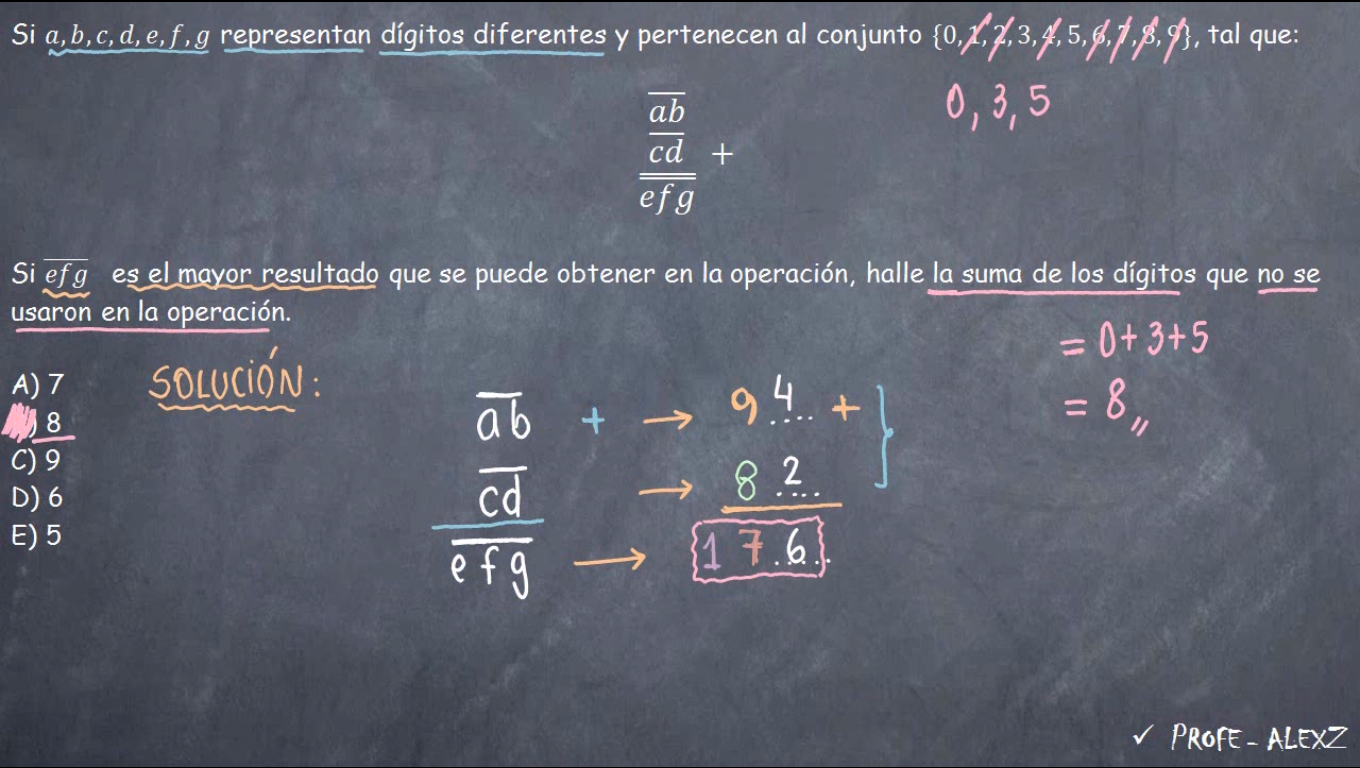 Si a, b, c, d, e, f, g representan dígitos diferentes y pertenecen al conjunto {0, 1, 2, 3, 4, 5, 6, 7, 8, 9}, tal que:
0, 3, 5
ab
cd +
efg
Si efg es el mayor resultado que se puede obtener en la operación, halle la suma de los dígitos que no se
usaron en la operación.
= 0+3+5
= 8,,
A) 7
) 8
C) 9
D) 6
E) 5
SOLUCIÓN:
ab + → 9 4 +
cd → 8 2
efg → 1 7 6
✓ PROFE - ALEXZ